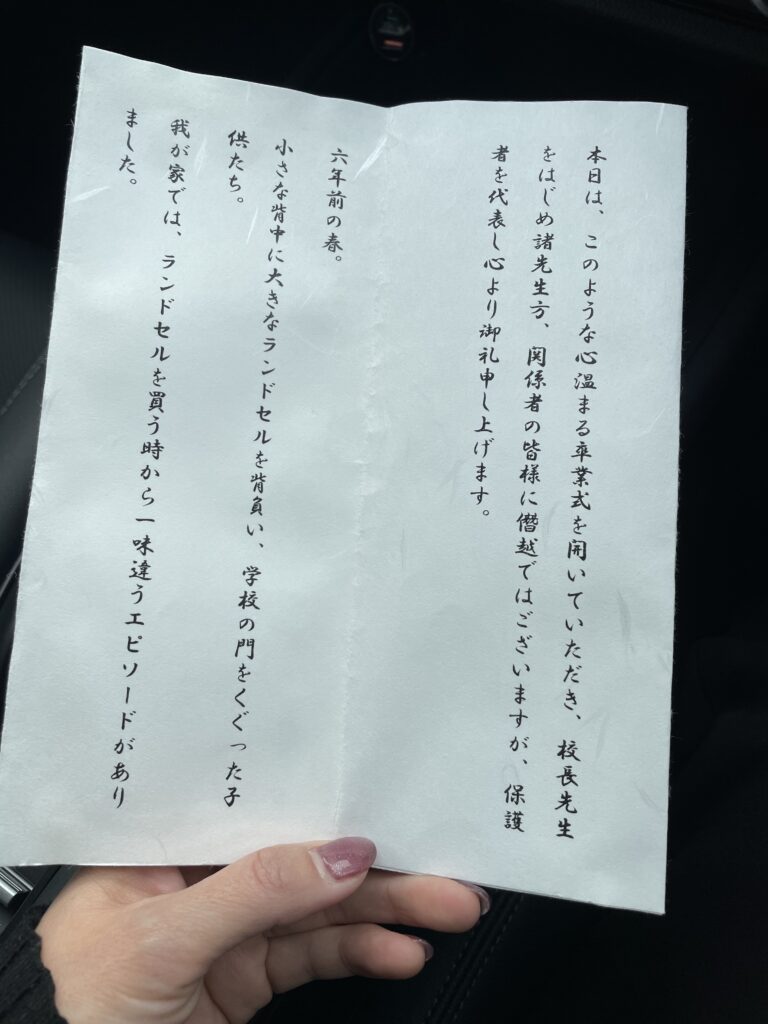 本日は、このような心温まる卒業式を開いていただき、校長先生
をはじめ諸先生方、関係者の皆様に僭越ではございますが、保護
者を代表し心より御礼申し上げます。
六年前の春。
小さな背中に大きなランドセルを背負い、学校の門をくぐった子
供たち。
我が家では、ランドセルを買う時から一味違うエピソードがあり
ました。